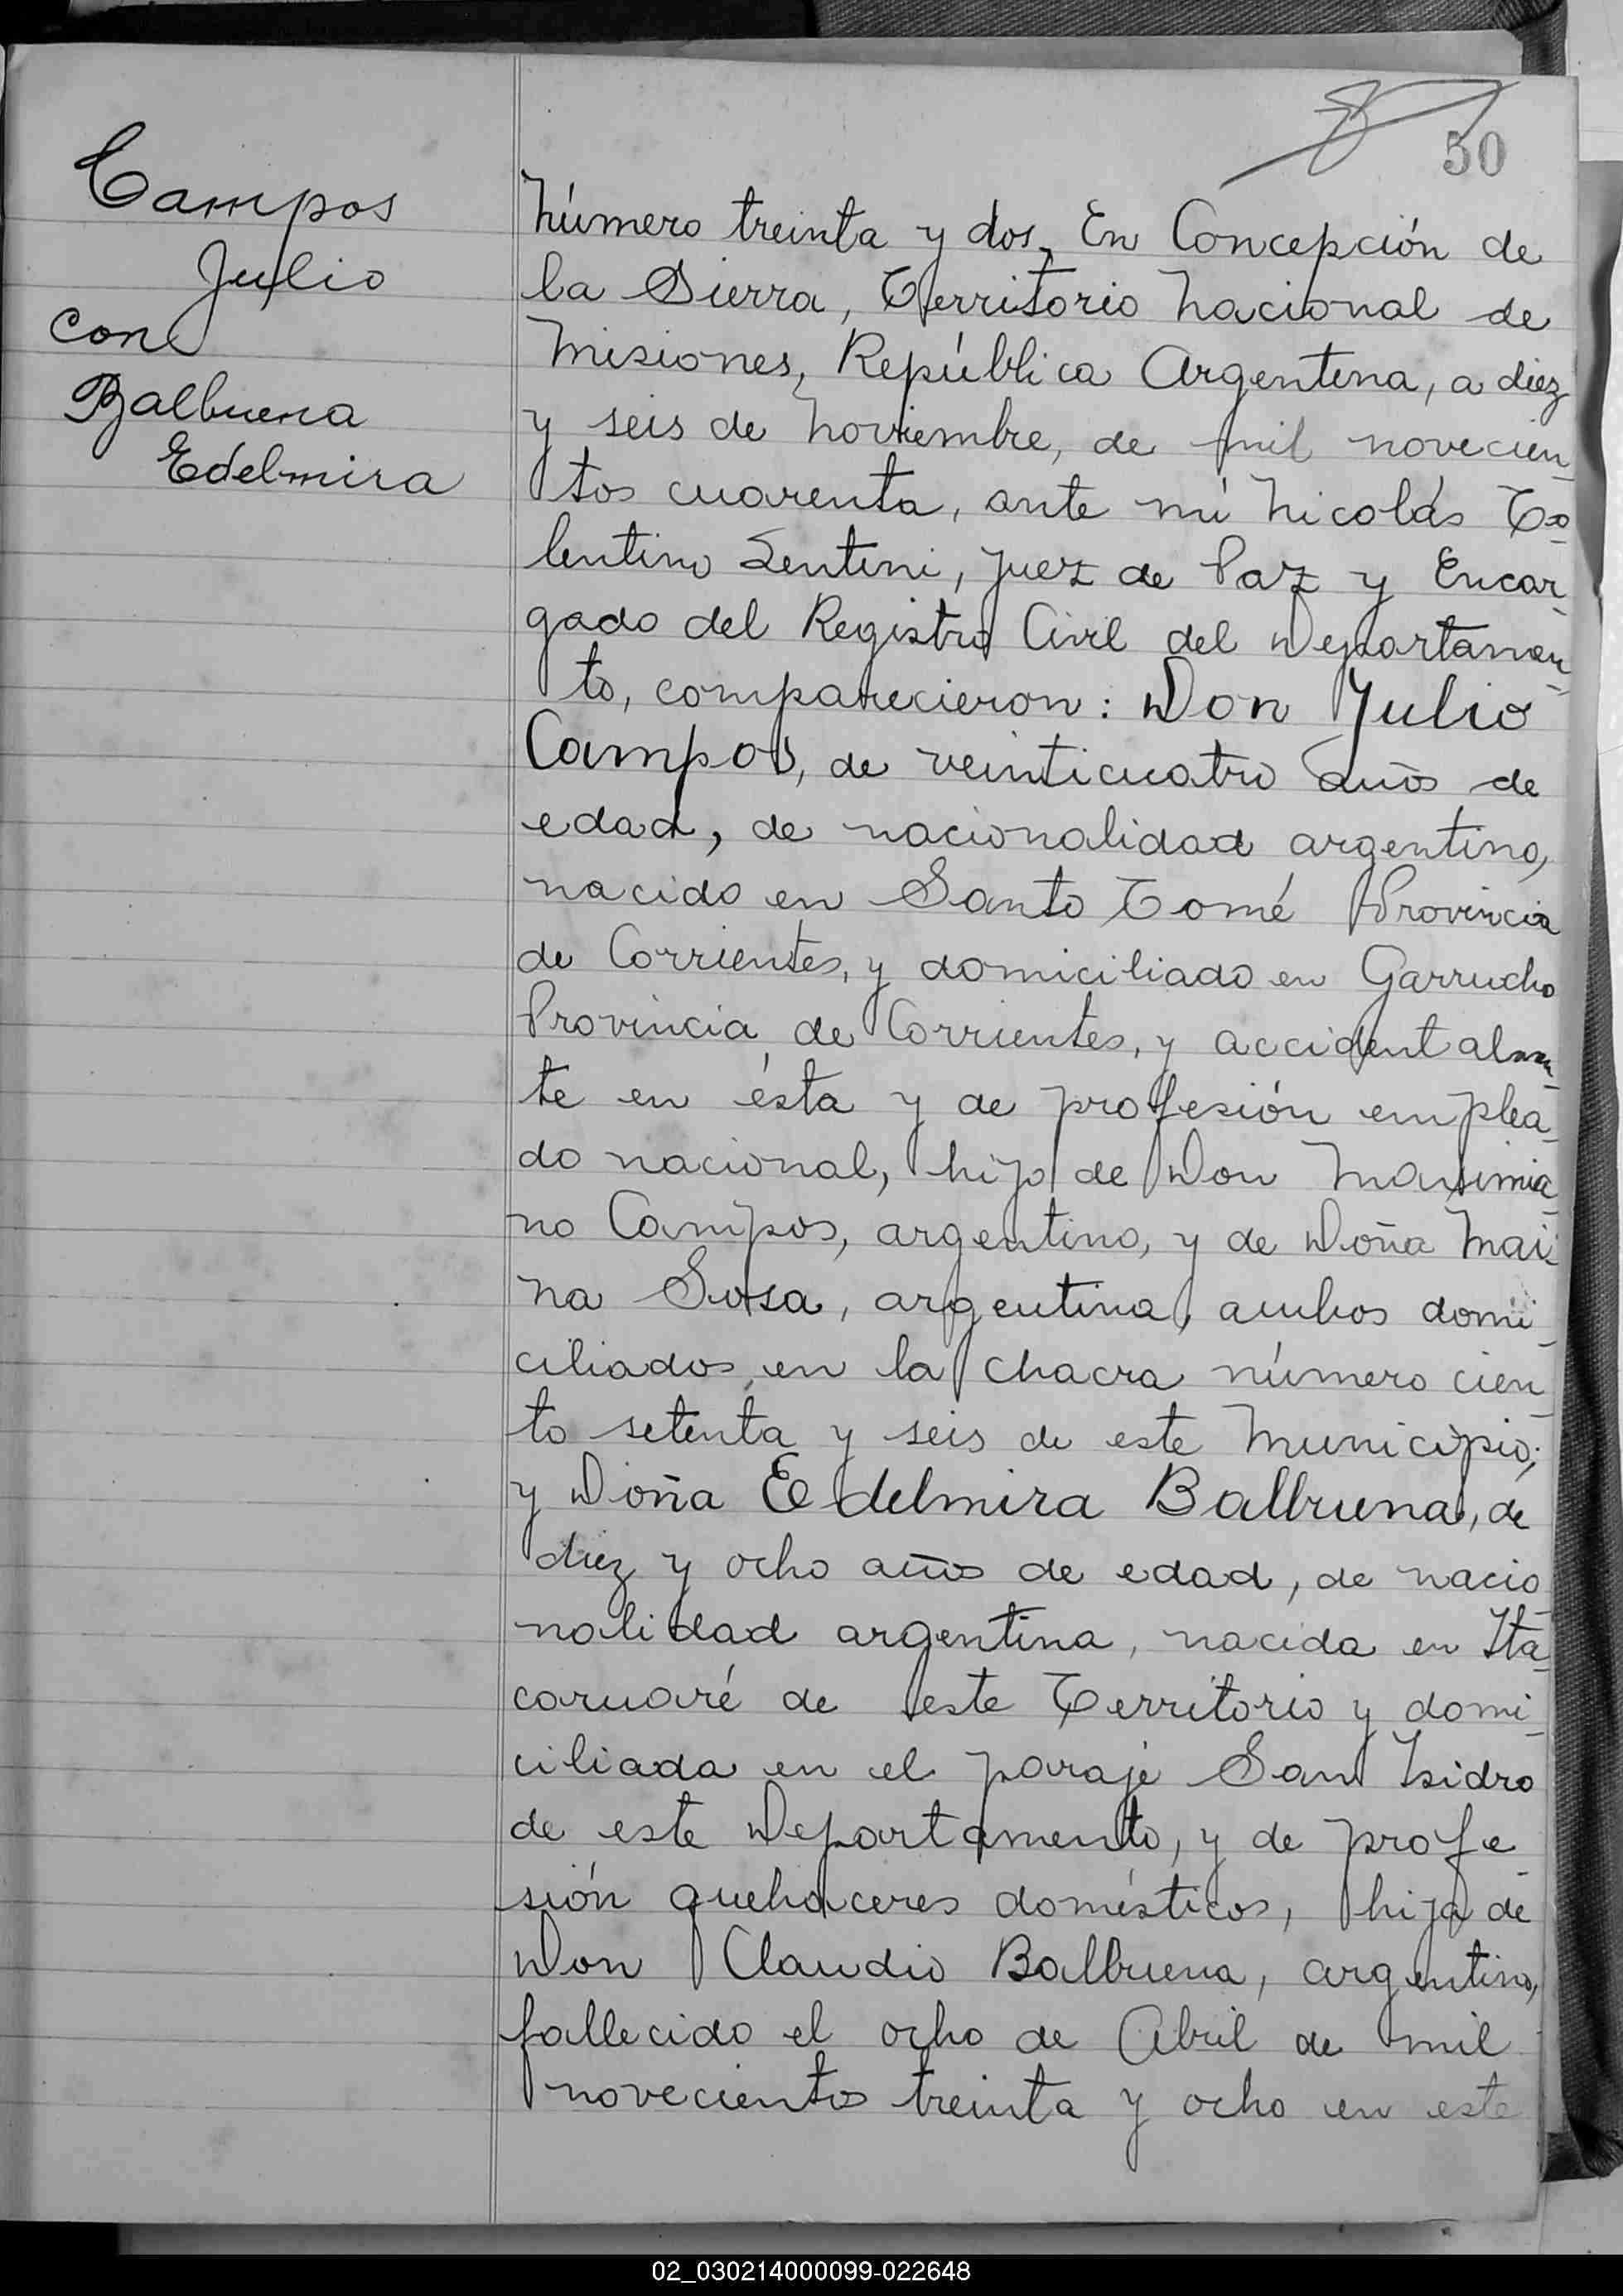 50
Campos
Julio
con
Balbuena
Edelmira
Número treinta y dos, En Concepción de
la Sierra, Territorio Nacional de
Misiones, República Argentina, a diez
y seis de Noviembre, de mil novecien-
tos cuarenta, ante mí Nicolás To-
lentino Lentini, Juez de Paz y Encar-
gado del Registro Civil del Departamen-
to, comparecieron: Don Julio
Campos, de veinticuatro años de
edad, de nacionalidad argentino,
nacido en Santo Tomé Provincia
de Corrientes, y domiciliado en Garrucho
Provincia de Corrientes, y accidentalmen-
te en ésta y de profesión emplea-
do nacional, hijo de Don Maximia-
no Campos, argentino, y de Doña Mai-
na Sosa, argentina, ambos domi-
ciliados en la chacra número cien-
to setenta y seis de este Municipio;
y Doña Edelmira Balbuena, de
diez y ocho años de edad, de nacio-
nalidad argentina, nacida en Ita-
caruaré de este Territorio y domi-
ciliada en el paraje San Isidro
de este Departamento, y de profe-
sión quehaceres domésticos, hija de
Don Claudio Balbuena, argentino,
fallecido el ocho de Abril de mil
novecientos treinta y ocho en este
02_030214000099-022648